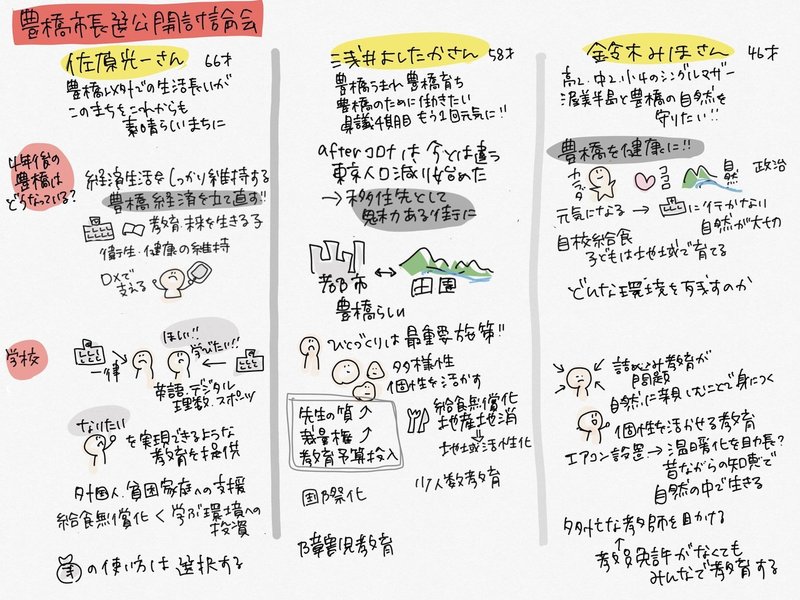 豊橋市長選公開討論会
佐原光一さん 66才
豊橋以外での生活長いが
このまちをこれからも
素晴らしいまちに
4年後の
豊橋は
どうなっている?
経済生活をしっかり維持する
豊橋経済を立て直す!!
教育・未来を生きる子
衛生・健康の維持
DXで
支える
学校
一律
ほしい!!
学びたい!!
英語・デジタル
理数・スポーツ
なりたい
を実現できるような
教育を提供
外国人・貧困家庭への支援
給食無償化 < 学ぶ環境への
投資
¥の使い方は選択する
浅井よしたかさん 58才
豊橋うまれ 豊橋育ち
豊橋のために働きたい
県議4期目 もう1回元気に!!
afterコロナは今とは違う
東京人口減り始めた
→移住先として
魅力ある街に
都市 ↔ 田園
豊橋らしい
ひとづくりは最重要施策!!
多様性
個性を活かす
先生の質↑
裁量権↑
教育予算投入
給食無償化
地産地消
↓
地域活性化
国際化
少人数教育
障害児教育
鈴木みほさん 46才
高2、中2、小4のシングルマザー
渥美半島と豊橋の自然を
守りたい!!
豊橋を健康に!!
カラダ
ココロ
自然
政治
元気になる → に行かない
自然が大切
自校給食
子どもは地域で育てる
どんな環境を残すのか
詰め込み教育が
問題
自然に親しむことで身につく
個性を活かせる教育
エアコン設置→温暖化を助長?
昔ながらの知恵で
自然の中で生きる
多忙な教師を助ける
↑
教員免許がなくても
みんなで教育する